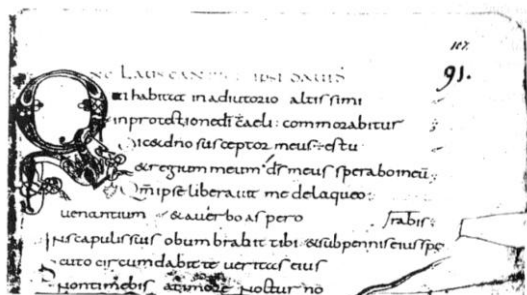 107.
91.
LAUS CAN IPSI DAVID
Qui habitat in adiutorio altissimi
in protectione di caeli commorabitur
Dic& dno susceptor meus es tu
& refugium meum ds meus sperabo in eu
Qm ipse liberavit me de laqueo
venantium & a verbo aspero
In scapulis suis obumbrabit tibi & sub pennis eius
scuto circumdabit te veritas eius
Non timebis a timore nocturno